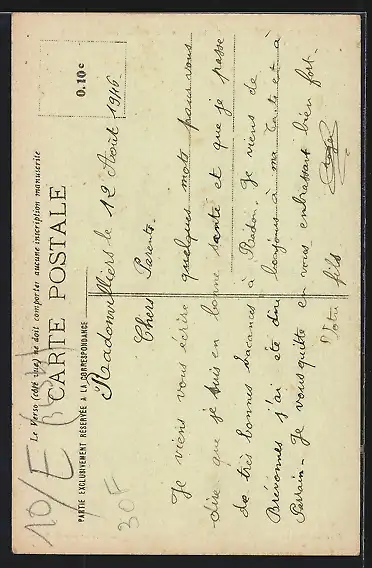 Le Verso (côté vue) ne doit comporter aucune inscription manuscrite
CARTE POSTALE
PARTIE EXCLUSIVEMENT RÉSERVÉE A LA CORRESPONDANCE
0.10c
10/E
30F
Radonvilliers le 12 Août 1916
Chers Parents.
Je viens vous écrire quelques mots pour vous
dire que je suis en bonne santé et que je passe
de très bonnes vacances à Radon. Je viens de
Brévonnes j'ai été dire bonjours à ma tante et à
Parrain - Je vous quitte en vous embrassant bien fort.
Votre fils
Roger